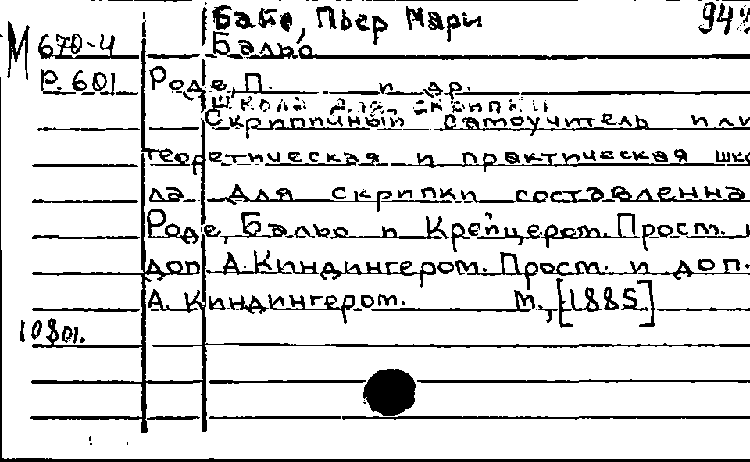 Байо, Пьер Мари 942
М 670-4 Бальо
Р. 601 Роде, П. и др.
Школа для скрипки
Скрипичный самоучитель или
теоретическая и практическая шко
ла для скрипки составленна
Роде, Бальо и Крейцером. Прост. и
доп. А. Киндингером. Прост. и доп.
А. Киндингером. М., [1885]
10801.